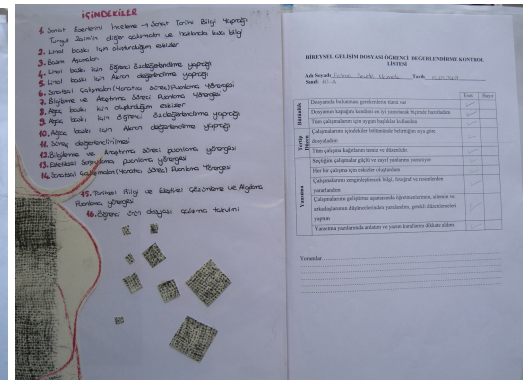 İÇİNDEKİLER
1. Sanat Eserlerini İnceleme → Sanat Tarihi Bilgi Yaprağı
Turgut Zaim'in diğer çalışmaları ve hakkında kısa bilgi
2. Linol baskı için oluşturduğum eskizler
3. Basım Aşamaları
4. Linol baskı için Öğrenci Özdeğerlendirme yaprağı
5. Linol baskı için Akran değerlendirme yaprağı
6. Sanatsal Çalışmaları (Yaratıcı Süreci) Puanlama Yönergesi
7. Bilgilenme ve Araştırma Süreci Puanlama Yönergesi
8. Ağaç baskı için oluşturduğum eskizler
9. Ağaç baskı için Öğrenci Özdeğerlendirme yaprağı
10. Ağaç baskı için Akran değerlendirme yaprağı
11. Süreç değerlendirilmesi
12. Bilgilenme ve Araştırma süreci puanlama yönergesi
13. Estetiksel Sorgulama puanlama yönergesi
14. Sanatsal Çalışmaları (Yaratıcı Süreci) Puanlama Yönergesi
15. Tarihsel Bilgi ve Eleştirel Çözümleme ve Algılama
Puanlama yönergesi
16. Öğrenci ürün dosyası çalışma takvimi
BİREYSEL GELİŞİM DOSYASI ÖĞRENCİ DEĞERLENDİRME KONTROL
LİSTESİ
Adı Soyadı Tarih
Sınıf
Evet Hayır
Bütünlük
Dosyamda bulunması gerekenlerin tümü var
Dosyamın kapağını kendimi en iyi yansıtacak biçimde hazırladım
Tüm çalışmalarım için uygun başlıklar kullandım
Tertip Düzen
Çalışmalarımı içindekiler bölümünde belirttiğim sıra göre
dosyaladım
Tüm çalışma kağıtlarım temiz ve düzenlidir.
Yansıtma
Seçtiğim çalışmalar güçlü ve zayıf yanlarımı yansıtıyor
Her bir çalışma için eskizler oluşturdum
Çalışmalarımı zenginleştirecek bilgi, fotoğraf ve resimlerden
yararlandım
Çalışmalarımı geliştirme aşamasında öğretmenlerimin, ailemin ve
arkadaşlarımın düşüncelerinden yararlandım, gerekli düzeltmeleri
yaptım
Yansıtma yazılarımda anlatım ve yazım kurallarını dikkate aldım
Yorumlar